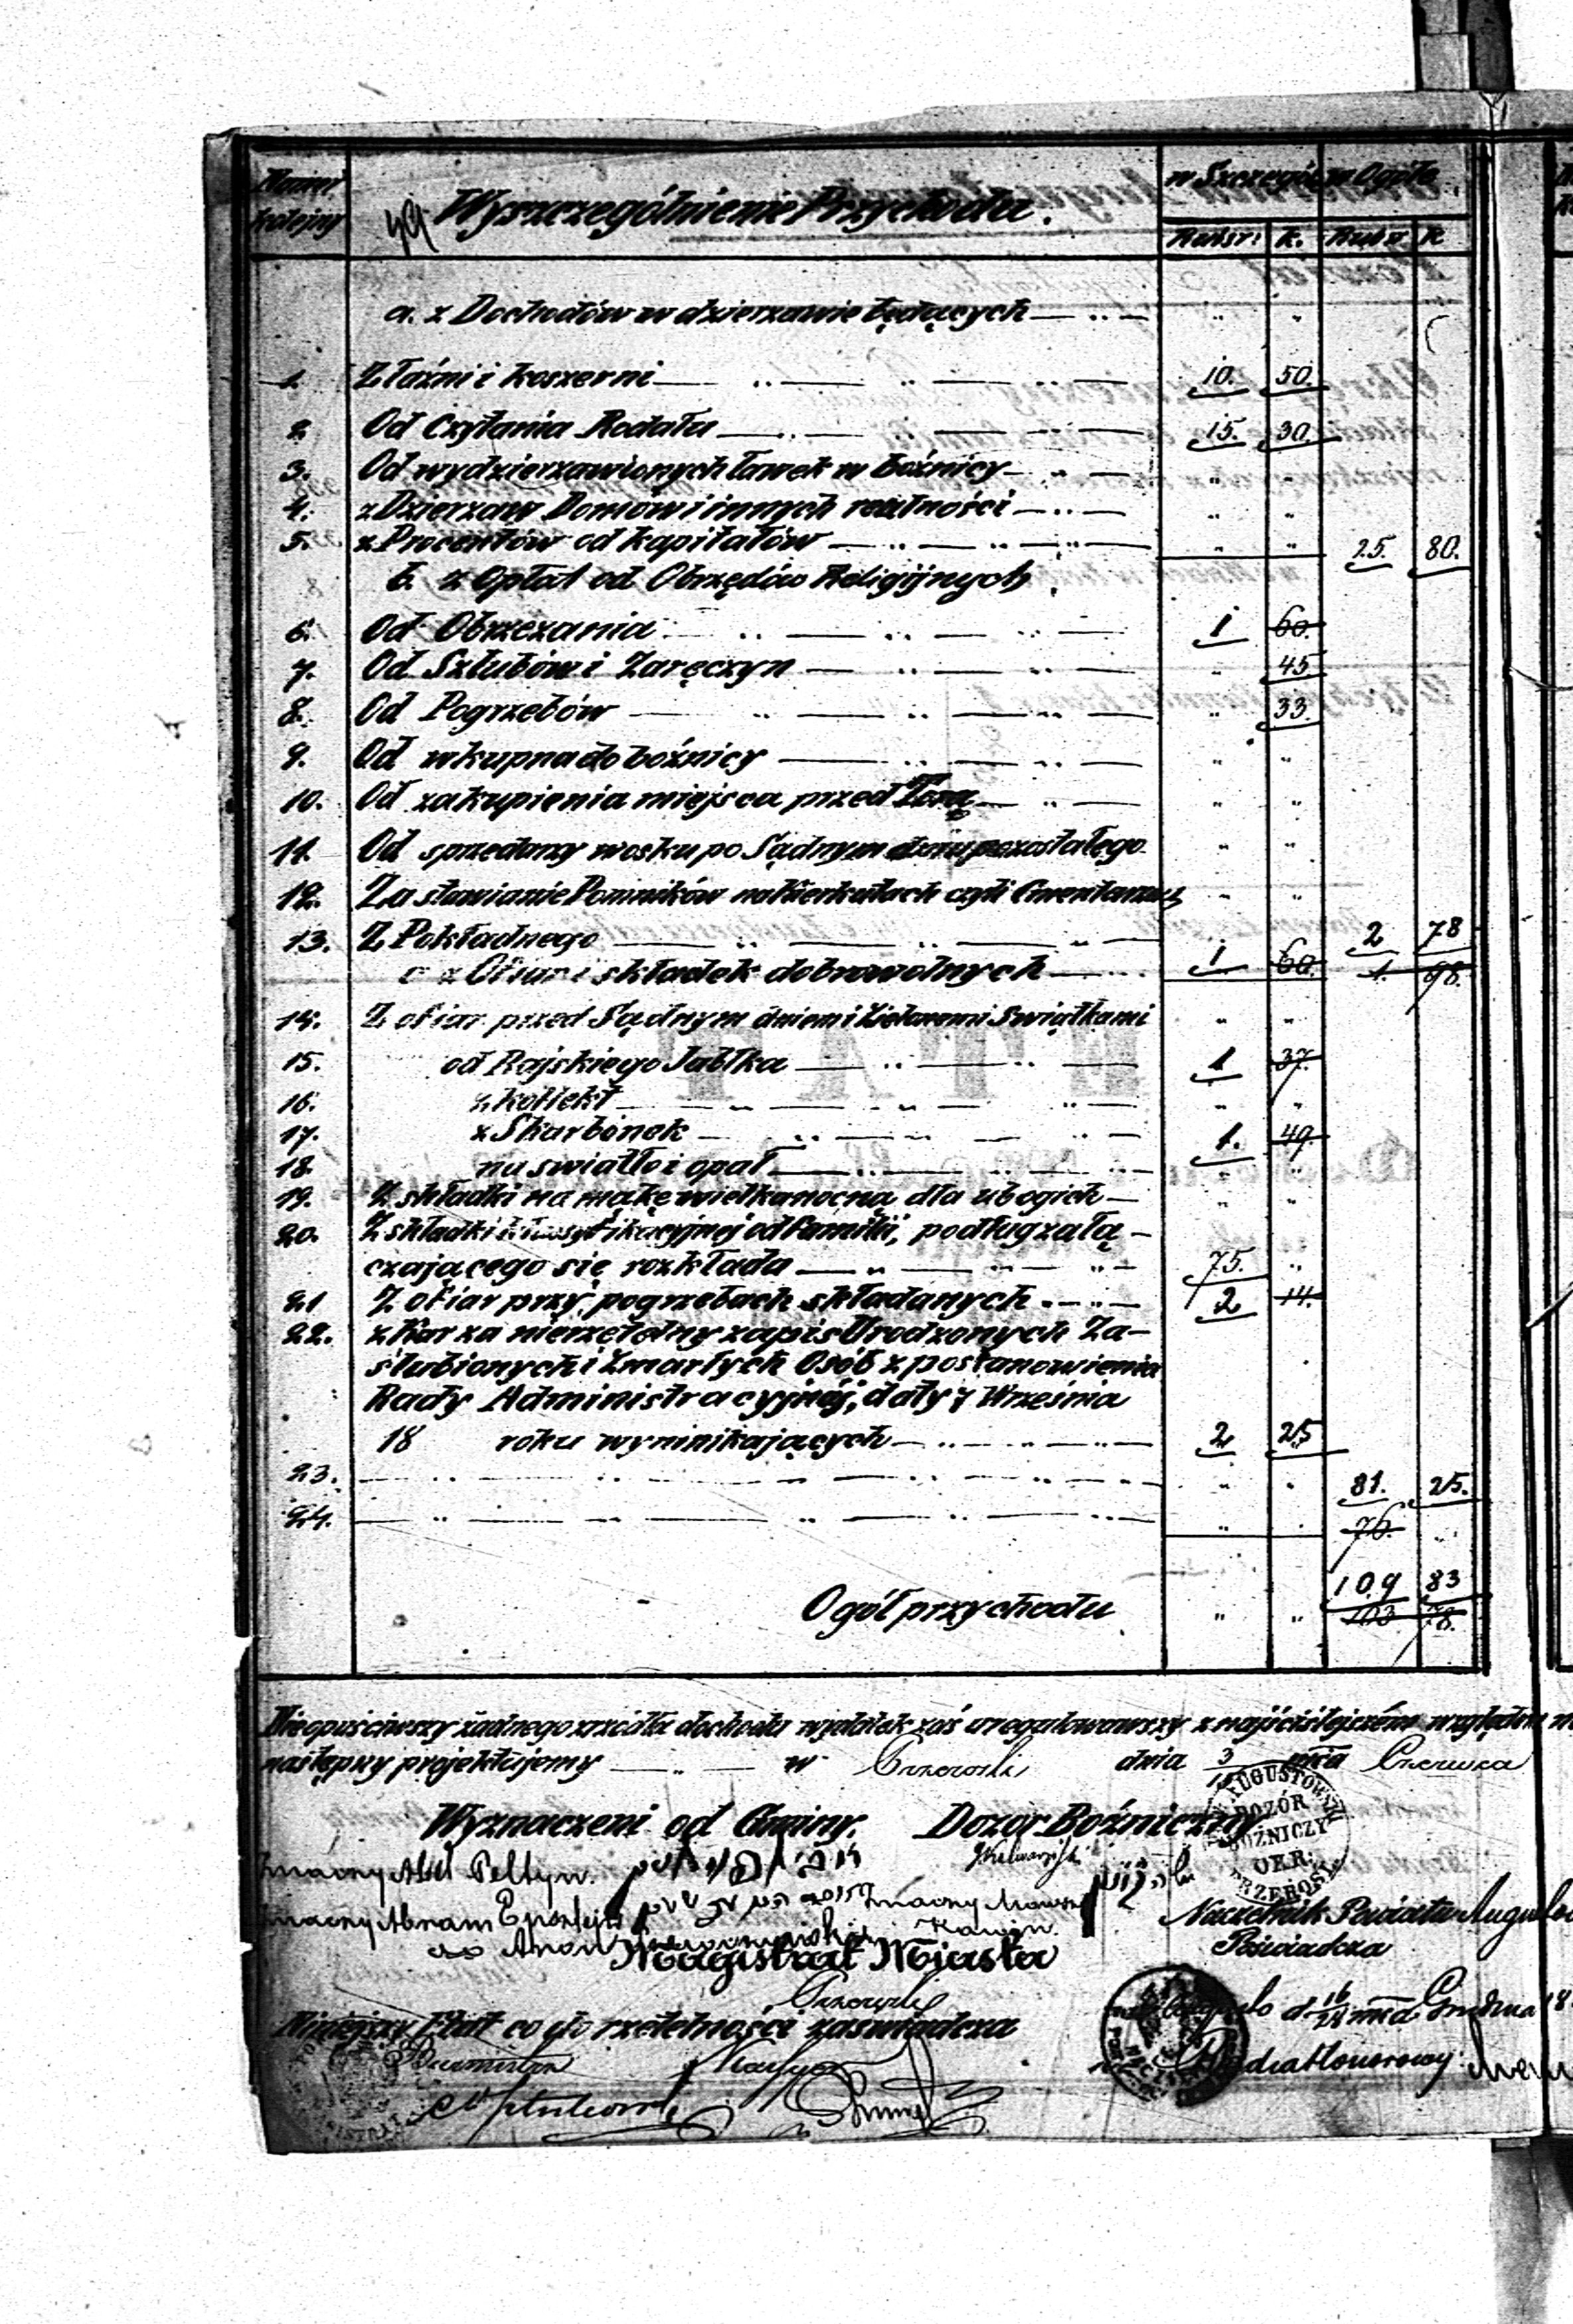 Numer kolejny
Wyszczególnienie Przychodu.
w Szczególe w Ogóle
Rubsr: K. Rubsr K
a. z Dochodów w dzierzawie będących
1. Z Łaźni i koszerni 10. 50.
2. Od Czytania Rodału 15. 30.
3. Od wydzierzawionych ławek w bożnicy
4. z Dzierzaw Domów i innych realności
5. z Procentów od kapitałów 25. 80.
b. z Opłat od Obrzędów Religijnych
6. Od Obrzezania 1 60.
7. Od Szlubów i Zaręczyn 45
8. Od Pogrzebów 33.
9. Od wkupna do bożnicy
10. Od zakupienia miejsca przed Torą
11. Od sprzedarzy wosku po Sądnym dniu pozostałego
12. Za stawianie Pomników na Kierkutach czyli Cmentarzu
13. Z Pokładnego 2 78
c z Ofiar i składek dobrowolnych 1 60. 1. 98.
14. Z ofiar przed Sądnym dniem i Zielonemi Swiątkami
15. od Rajskiego Jabłka 1 37.
16. z Kollekt
17. z Skarbonek 1. 49.
18. na swiatło i opał
19. Z składki na mąkę wielkanocną dla ubogich
20. Z składki klassyfikacyjnej od Familii, podług załą-
czającego się rozkłada 75.
21 Z ofiar przy pogrzebach składanych 2 14.
22. z Kar za nierzetelny zapis Urodzonych Za-
ślubionych i Zmarłych Osób z postanowienia
Rady Administracyjnéj, daty 7 Wrzesnia
18 roku wyninikających 2 25
23. 81. 25.
24. 76.
109 83
Ogół przychodu 103 78.
Nieopuściwszy żadnego zrzódła dochodu wydatek zaś uregulowawszy z najściślejszém względem
następny projektujemy w dnia 3 mca Czerwca
Wyznaczeni od Gminy. Dozor Bożniczny
AUGUSTOWSKI DOZÓR BOŻNICZY OKR: PRZEROŚL
znaczy Abel Peltyn.
znaczy Abram Epsztejn znaczy
Naczelnik Powiatu
Magistrat Miasta Poświadcza
d 16 mca Grudnia 18
Niniejszy Etat co do rzetelności zaświadcza
Burmistrz